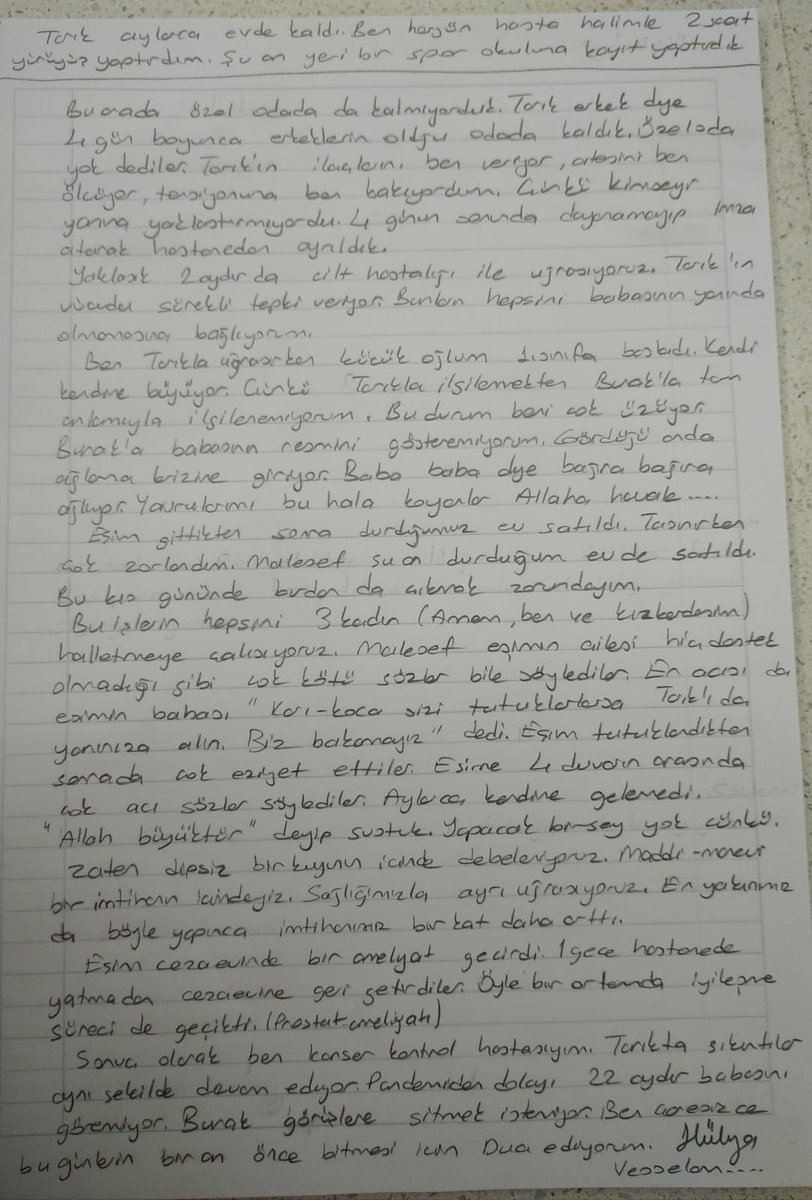 Tarık aylarca evde kaldı. Ben hergün hasta halimle 2 saat
yürüyüş yaptırdım. Şu an yeni bir spor okuluna kayıt yaptırdık
Bu arada özel odada da kalmıyorduk. Tarık erkek diye
4 gün boyunca erkeklerin olduğu odada kaldık. Özel oda
yok dediler. Tarık'ın ilaçlarını ben veriyor, ateşini ben
ölçüyor, tansiyonuna ben bakıyordum. Çünkü kimseyi
yanına yaklaştırmıyordu. 4 günün sonunda dayanamayıp imza
atarak hastaneden ayrıldık.
Yaklaşık 2 aydır da cilt hastalığı ile uğraşıyoruz. Tarık'ın
vücudu sürekli tepki veriyor. Bunların hepsini babasının yanında
olmamasına bağlıyorum.
Ben Tarıkla uğraşırken küçük oğlum 1.sınıfa başladı. Kendi
kendine büyüyor. Çünkü Tarıkla ilgilenmekten Burak'la tam
anlamıyla ilgilenemiyorum. Bu durum beni çok üzüyor.
Burak'la babasının resmini gösteremiyorum. Gördüğü anda
ağlama krizine giriyor. Baba baba diye bağıra bağıra
ağlıyor. Yavrularımı bu hala koyanlar Allaha havale....
Eşim gittikten sonra durduğumuz ev satıldı. Taşınırken
çok zorlandım. Malesef şu an durduğum ev de satıldı.
Bu kış gününde burdan da çıkmak zorundayım.
Bu işlerin hepsini 3 kadın (Annem, ben ve kızkardeşim)
halletmeye çalışıyoruz. Malesef eşimin ailesi hiç destek
olmadığı gibi çok kötü sözler bile söylediler. En acısı da
eşimin babası "Karı-koca sizi tutuklarlarsa Tarık'ı da
yanınıza alın. Biz bakamayız" dedi. Eşim tutuklandıktan
sonrada çok eziyet ettiler. Eşime 4 duvarın arasında
çok acı sözler söylediler. Aylarca kendine gelemedi.
"Allah büyüktür" deyip sustuk. Yapacak bir şey yok çünkü.
Zaten dipsiz bir kuyunun içinde debeleniyoruz. Maddi-manevi
bir imtihanın içindeyiz. Sağlığımızla ayrı uğraşıyoruz. En yakınımız
da böyle yapınca imtihanımız bir kat daha arttı.
Eşim cezaevinde bir ameliyat geçirdi. 1 gece hastanede
yatmadan cezaevine geri getirdiler. Öyle bir ortamda iyileşme
süreci de gecikti. (Prostat ameliyatı)
Sonuç olarak ben kanser kontrol hastasıyım. Tarıkta sıkıntılar
aynı şekilde devam ediyor. Pandemiden dolayı 22 aydır babasını
göremiyor. Burak görüşlere gitmek istemiyor. Ben çaresizce
bu günlerin bir an önce bitmesi için Dua ediyorum. Hülya
Vesselam....